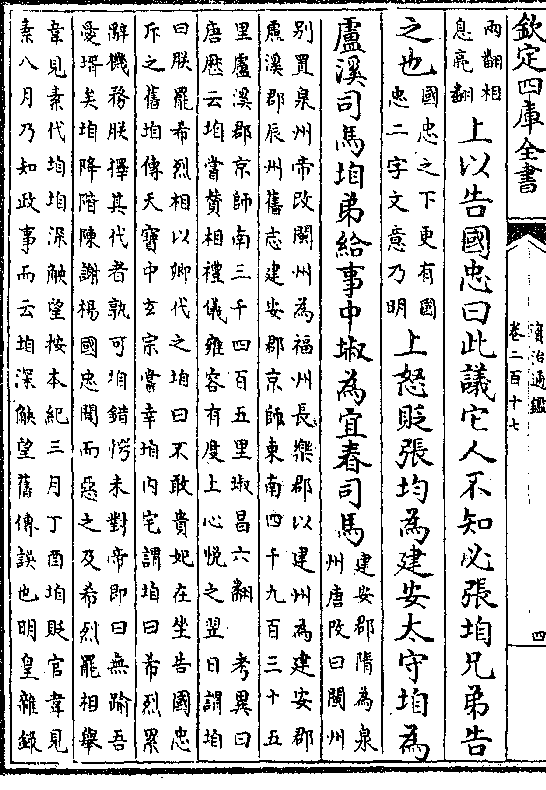 欽定四庫全書
資治通鑑
卷二百十七
四
兩翻相
息亮翻
上以告國忠曰此議它人不知必張垍兄弟告
之也
國忠之下更有國
忠二字文意乃明
上怒貶張均為建安太守垍為
盧溪司馬垍弟給事中埱為宜春司馬
建安郡隋為泉
州唐改曰閩州
别置泉州帝改閩州為福州長樂郡以建州為建安郡
盧溪郡辰州舊志建安郡京師東南四千九百三十五
里盧溪郡京師南三千四百五里埱昌六翻 考異曰
唐歷云垍嘗贊相禮儀雍容有度上心悦之翌日謂垍
曰朕罷希烈相以卿代之垍曰不敢貴妃在坐告國忠
斥之舊垍傳天寶中玄宗嘗幸垍内宅謂垍曰希烈累
辭機務朕擇其代者孰可垍錯愕未對帝即曰無踰吾
愛壻矣垍降階陳謝楊國忠聞而惡之及希烈罷相舉
韋見素代垍垍深觖望按本紀三月丁酉垍貶官韋見
素八月乃知政事而云垍深觖望舊傳誤也明皇雜録